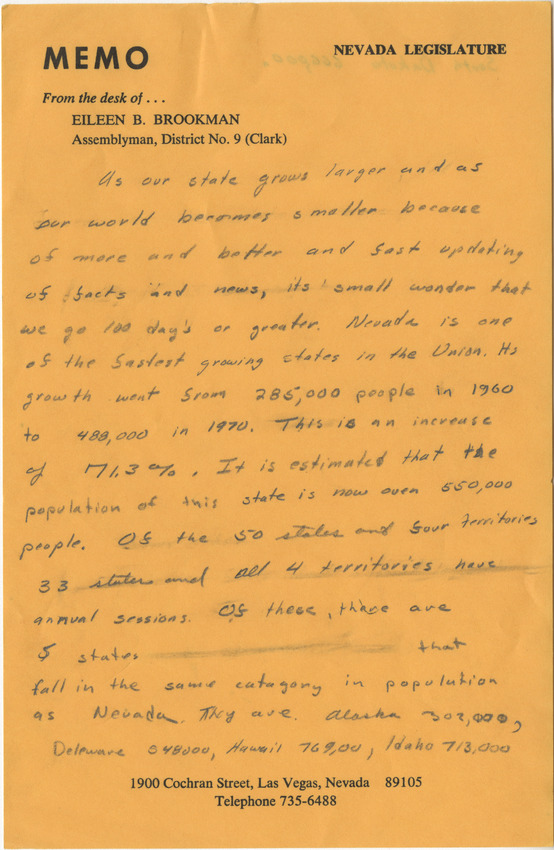 MEMO
NEVADA LEGISLATURE
From the desk of . . .
EILEEN B. BROOKMAN
Assemblyman, District No. 9 (Clark)
As our state grows larger and as
our world becomes smaller because
of more and better and fast updating
of facts and news, its small wonder that
we go 100 day's or greater. Nevada is one
of the fastest growing states in the Union. Its
growth went from 285,000 people in 1960
to 488,000 in 1970. This is an increase
of 71.3%. It is estimated that the
population of this state is now over 550,000
people. Of the 50 states and four territories
33 states and all 4 territories have
annual sessions. Of these, there are
5 states that
fall in the same catagory in population
as Nevada. They are. Alaska 302,000,
Deleware 548000, Hawaii 769,00, Idaho 713,000
1900 Cochran Street, Las Vegas, Nevada 89105
Telephone 735-6488